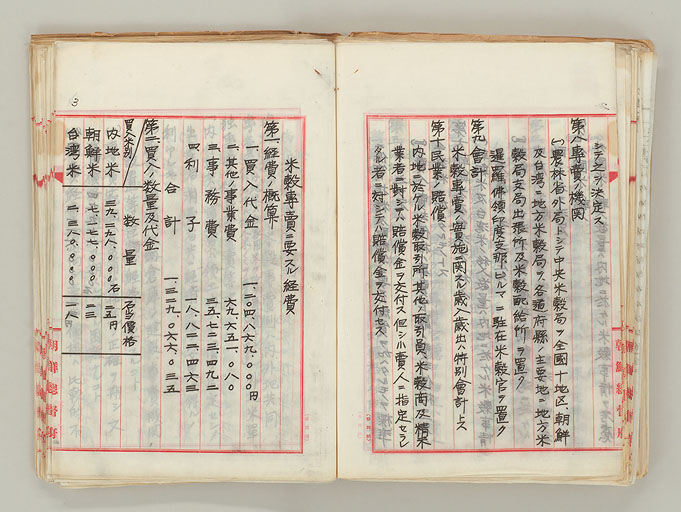 シテ之ヲ決定ス
第八、專賣ノ機関
(一)農林省外局トシテ中央米穀局ヲ全國十地區、朝鮮
及台湾ニ地方米穀局ヲ、各道府縣ノ主要地ニ地方米
穀局支局出張所及米穀配給所ヲ置ク
暹羅、佛領印度支那、ビルマニ駐在米穀官ヲ置ク
第九、會計
米穀專賣ノ實施ニ関スル歳入歳出ハ特別會計トス
第十、民業ノ賠償
(一)内地ニ於ケル米穀取引所其ノ他ノ取引員、米穀商及精米
業者ニ對シテハ賠償金ヲ交付ス但シ小賣人ニ指定セラレ
タル者ニ対シテハ賠償金ヲ交付セス
米穀專賣ニ要スル経費
第一、経費ノ概算
一、買入代金 一、二〇四、八六九、〇〇〇円
二、其他ノ事業費 六九、六五一、〇八〇
三、事務費 三五、七二三、四九二
四、利子 一八、八二二、四六三
合計 一、三二九、〇六六、〇三五
第二、買入ノ数量及代金
買入米別 数量 石当價格
内地米 三九、二九八、〇〇〇石 二五円
朝鮮米 七、二七七、〇〇〇 二三
台湾米 二、三八〇、〇〇〇 一八
朝鮮總督府
朝鮮總督府